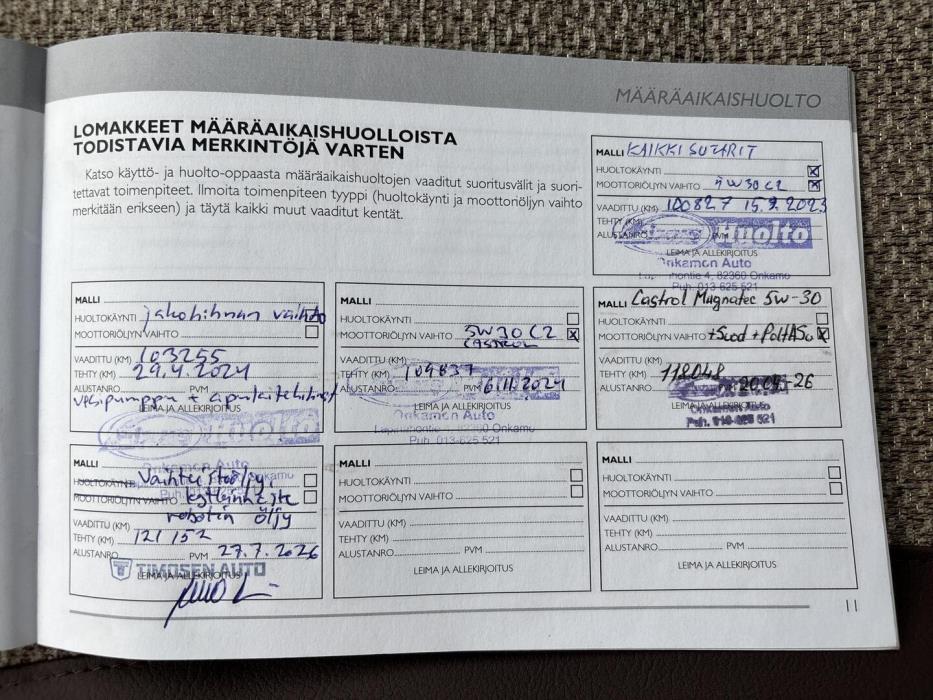 MÄÄRÄAIKAISHUOLTO
LOMAKKEET MÄÄRÄAIKAISHUOLLOISTA
TODISTAVIA MERKINTÖJÄ VARTEN
Katso käyttö- ja huolto-oppaasta määräaikaishuoltojen vaaditut suoritusvälit ja suori-
tettavat toimenpiteet. Ilmoita toimenpiteen tyyppi (huoltokäynti ja moottoriöljyn vaihto
merkitään erikseen) ja täytä kaikki muut vaaditut kentät.
MALLI KAIKKI SUZARIT
HUOLTOKÄYNTI
MOOTTORIÖLJYN VAIHTO 5W30 C2
VAADITTU (KM) 100827 15.9.2023
TEHTY (KM)
ALUSTANRO PVM
Huolto
LEIMA JA ALLEKIRJOITUS
Onkamon Auto
Lapinhontie 4, 82360 Onkamo
Puh. 013-625 521
MALLI
HUOLTOKÄYNTI jakohihnan vaihto
MOOTTORIÖLJYN VAIHTO
VAADITTU (KM) 103255
TEHTY (KM) 29.4.2024
ALUSTANRO PVM
vesipumppu + apulaitehihnat
LEIMA JA ALLEKIRJOITUS
Huolto
Onkamon Auto
MALLI
HUOLTOKÄYNTI
MOOTTORIÖLJYN VAIHTO 5W30 C2
CASTROL
VAADITTU (KM)
TEHTY (KM) 109837
ALUSTANRO PVM 6.11.2024
LEIMA JA ALLEKIRJOITUS
Onkamon Auto
Lapinhontie 4, 82360 Onkamo
Puh. 013-625 521
MALLI Castrol Magnatec 5w-30
HUOLTOKÄYNTI
MOOTTORIÖLJYN VAIHTO +Suod +PoltASu
VAADITTU (KM)
TEHTY (KM) 118048
ALUSTANRO 20.04-26
LEIMA JA ALLEKIRJOITUS
Onkamon Auto
Puh. 013-625 521
MALLI
HUOLTOKÄYNTI Vaihteistoöljy,
MOOTTORIÖLJYN VAIHTO kytkinneste
robotin öljy
VAADITTU (KM)
TEHTY (KM) 121 152
ALUSTANRO PVM 27.7.2026
TIMOSEN AUTO
LEIMA JA ALLEKIRJOITUS
MALLI
HUOLTOKÄYNTI
MOOTTORIÖLJYN VAIHTO
VAADITTU (KM)
TEHTY (KM)
ALUSTANRO PVM
LEIMA JA ALLEKIRJOITUS
MALLI
HUOLTOKÄYNTI
MOOTTORIÖLJYN VAIHTO
VAADITTU (KM)
TEHTY (KM)
ALUSTANRO PVM
LEIMA JA ALLEKIRJOITUS
11